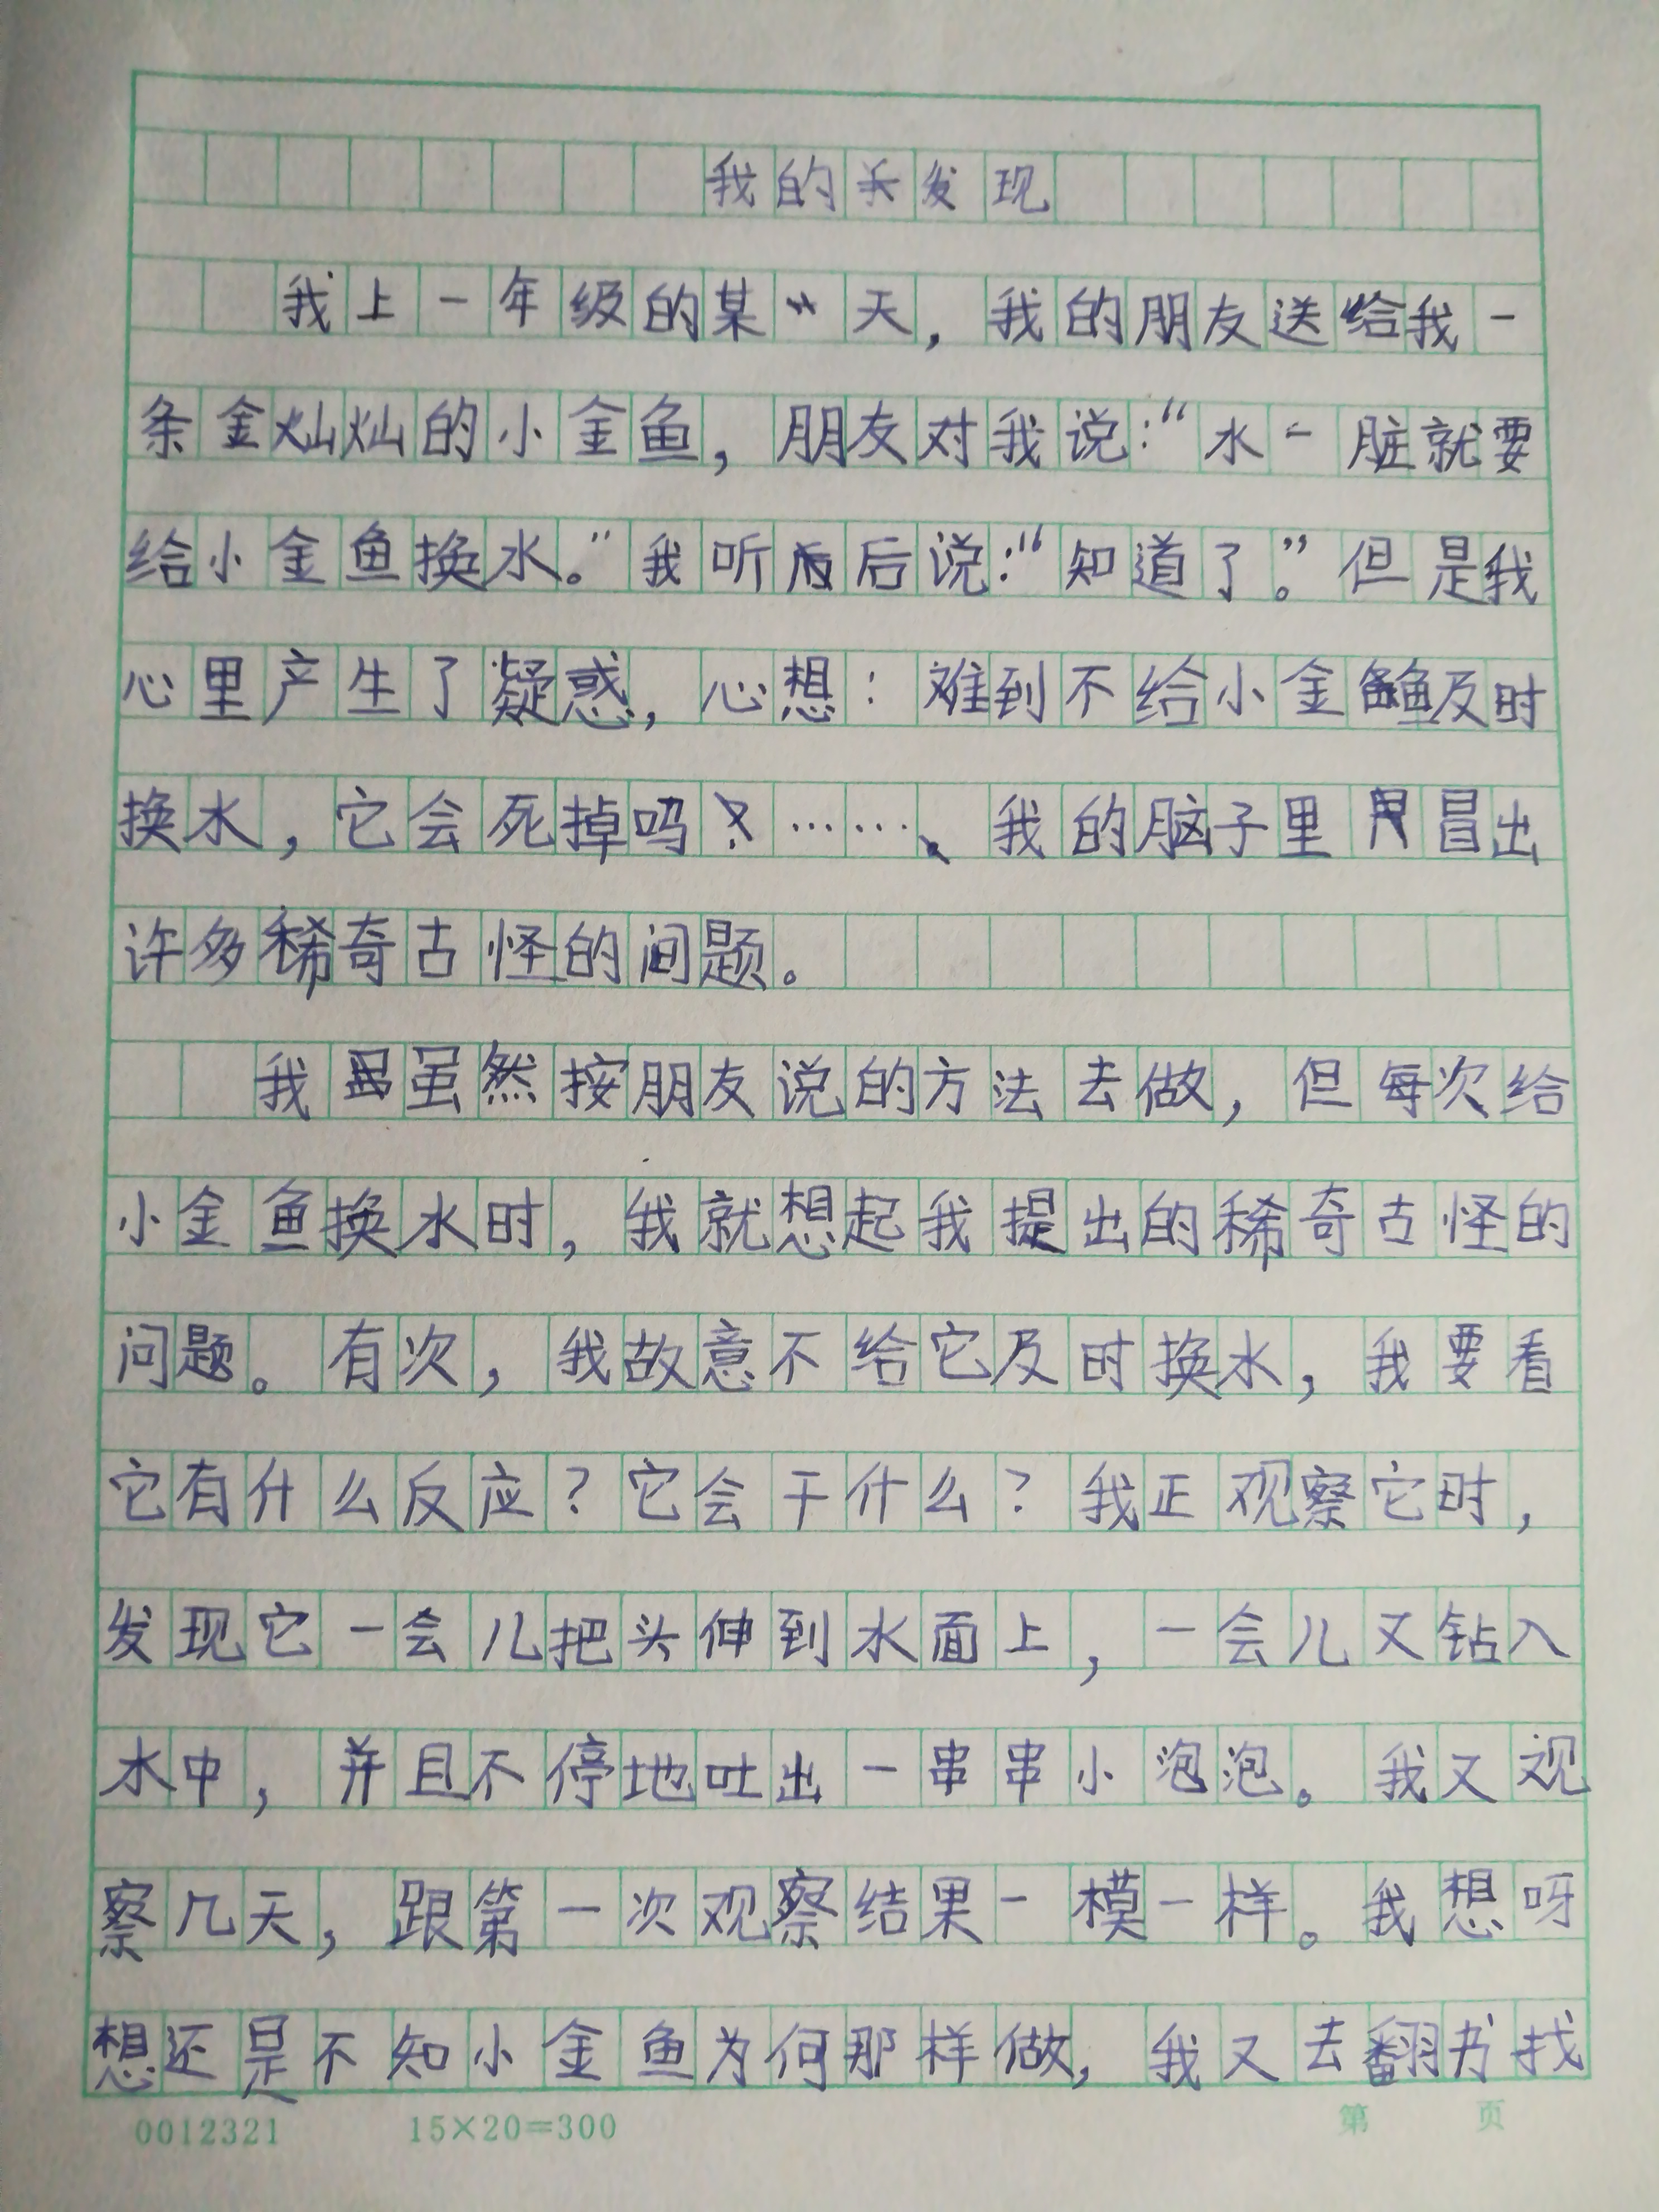 我的发现
我上一年级的某一天，我的朋友送给我一
条金灿灿的小金鱼，朋友对我说：“水一脏就要
给小金鱼换水。”我听后说：“知道了。”但是我
心里产生了疑惑，心想：难到不给小金鱼及时
换水，它会死掉吗？……、我的脑子里冒出
许多稀奇古怪的问题。
我虽然按朋友说的方法去做，但每次给
小金鱼换水时，我就想起我提出的稀奇古怪的
问题。有次，我故意不给它及时换水，我要看
它有什么反应？它会干什么？我正观察它时，
发现它一会儿把头伸到水面上，一会儿又钻入
水中，并且不停地吐出一串串小泡泡。我又观
察几天，跟第一次观察结果一模一样。我想呀
想还是不知小金鱼为何那样做，我又去翻书找
0012321 15×20=300 第 页